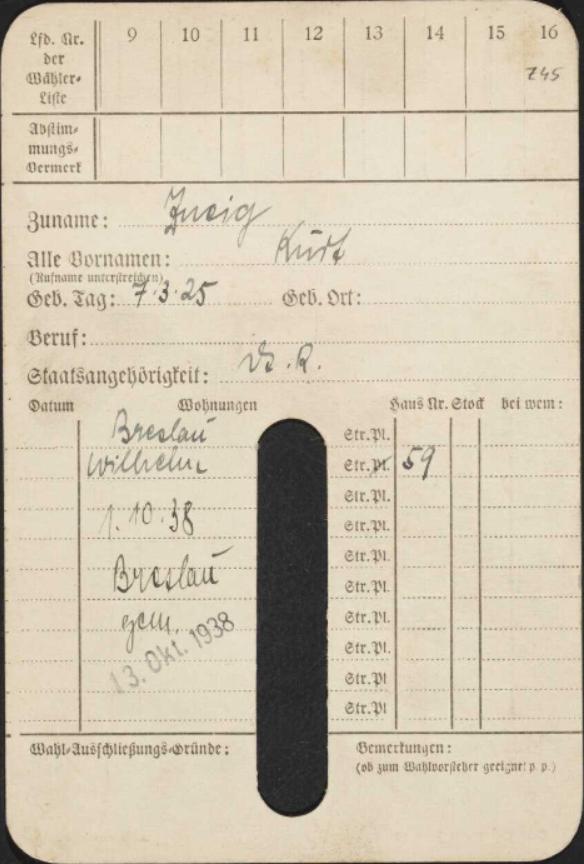 Lfd. Nr. der Wähler- Liste 9 10 11 12 13 14 15 16
745
Abstim- mungs- Vermerk
Zuname: Zweig
Alle Vornamen: Kurt
(Rufname unterstreichen)
Geb. Tag: 7.3.25 Geb. Ort:
Beruf:
Staatsangehörigkeit: D. R.
Datum Wohnungen Haus Nr. Stock bei wem:
Breslau Str.Pl.
Wilhelm Str.Pl. 59
Str.Pl.
1.10.38 Str.Pl.
Str.Pl.
Breslau Str.Pl.
gem. Str.Pl.
13. Okt. 1938 Str.Pl.
Str.Pl
Str.Pl
Wahl-Ausschließungs-Gründe: Bemerkungen:
(ob zum Wahlvorsteher geeignet p. p.)